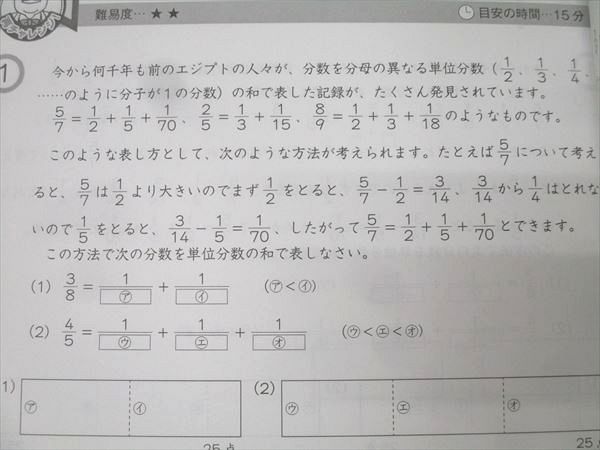 難易度…★★ 目安の時間…15分
チャレンジ
1 今から何千年も前のエジプトの人々が、分数を分母の異なる単位分数(1/2、1/3、1/4、
……のように分子が1の分数)の和で表した記録が、たくさん発見されています。
5/7=1/2+1/5+1/70、2/5=1/3+1/15、8/9=1/2+1/3+1/18のようなものです。
このような表し方として、次のような方法が考えられます。たとえば5/7について考え
ると、5/7は1/2より大きいのでまず1/2をとると、5/7-1/2=3/14、3/14から1/4はとれな
いので1/5をとると、3/14-1/5=1/70、したがって5/7=1/2+1/5+1/70とできます。
この方法で次の分数を単位分数の和で表しなさい。
(1) 3/8=1/㋐+1/㋑ (㋐<㋑)
(2) 4/5=1/㋒+1/㋓+1/㋔ (㋒<㋓<㋔)
1) ㋐ ㋑ (2) ㋒ ㋓ ㋔
25点 25